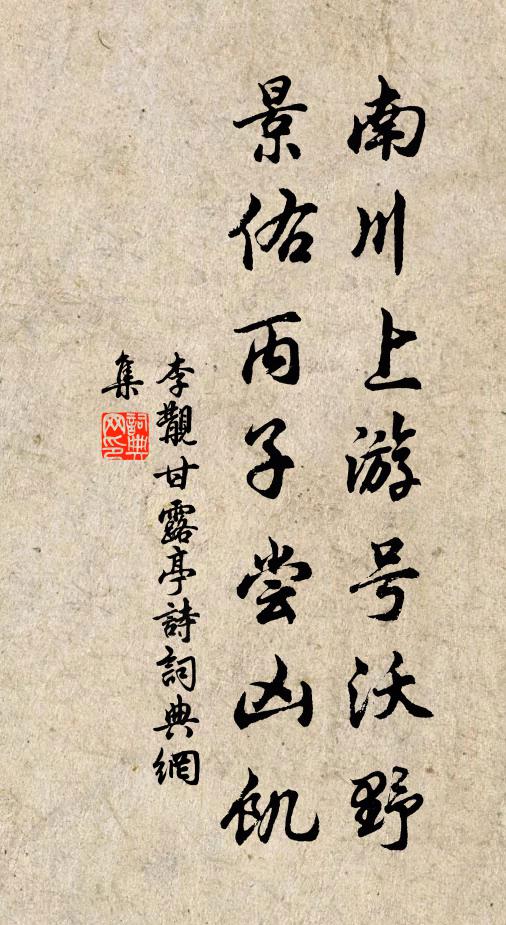 南川上游号沃野
景佑丙子尝凶饥
李觏甘露亭詩詞典網
集
詞典
网印